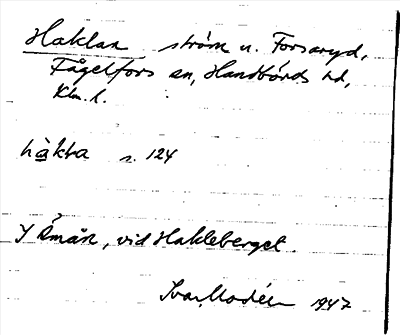 Haklan ström u. Forsaryd,
Fågelfors sn, Handbörds hd,
Klm. l.
häkta s. 124
I Emån, vid Hakleberget.
Ivar Modéer 1947